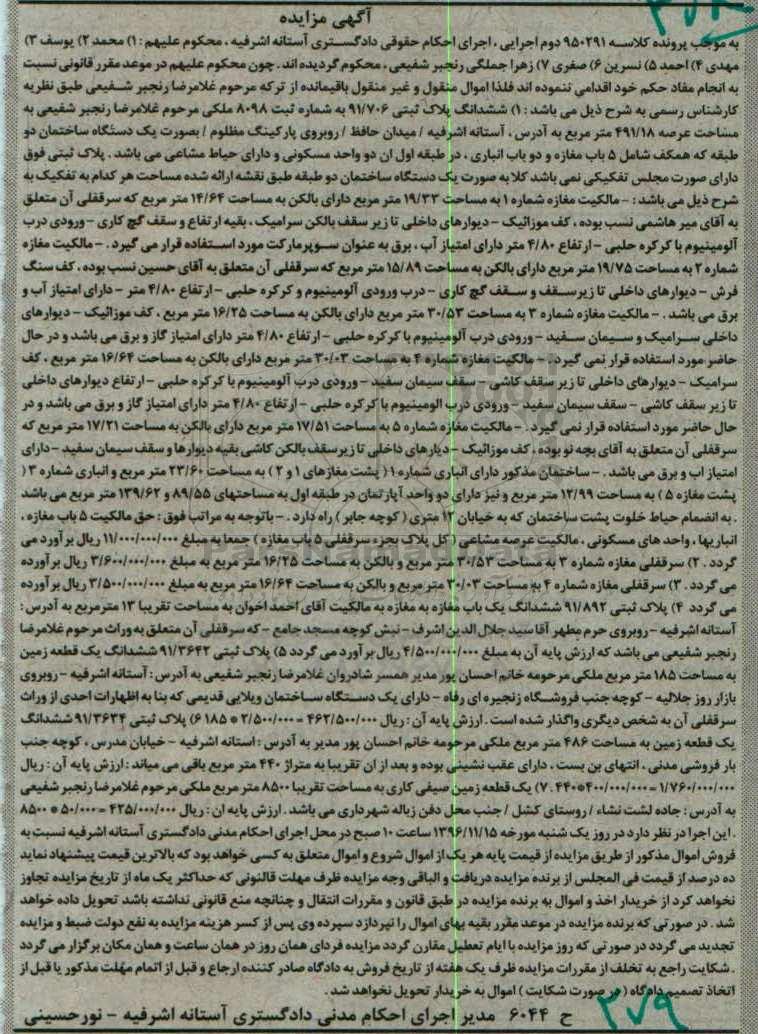 آگهی مزایده
به موجب پرونده کلاسه ۹۵۰۲۹۱ دوم اجرایی ، اجرای احکام حقوقی دادگستری آستانه اشرفیه ، محکوم علیهم : ۱) محمد ۲) یوسف ۳)
مهدی ۴) احمد ۵) نسرین ۶) صغری ۷) زهرا جملگی رنجبر شفیعی ، محکوم گردیده اند . چون محکوم علیهم در موعد مقرر قانونی نسبت
به انجام مفاد حکم خود اقدامی ننموده اند فلذا اموال منقول و غیر منقول باقیمانده از ترکه مرحوم غلامرضا رنجبر شفیعی طبق نظریه
کارشناس رسمی به شرح ذیل می باشد : ۱) ششدانگ پلاک ثبتی ۹۱/۷۰۶ به شماره ثبت ۸۰۹۸ ملکی مرحوم غلامرضا رنجبر شفیعی به
مساحت عرصه ۴۹۱/۱۸ متر مربع به آدرس ، آستانه اشرفیه / میدان حافظ / روبروی پارکینگ مظلوم / بصورت یک دستگاه ساختمان دو
طبقه که همکف شامل ۵ باب مغازه و دو باب انباری ، در طبقه اول ان دو واحد مسکونی و دارای حیاط مشاعی می باشد . پلاک ثبتی فوق
دارای صورت مجلس تفکیکی نمی باشد کلا به صورت یک دستگاه ساختمان دو طبقه طبق نقشه ارائه شده مساحت هر کدام به تفکیک به
شرح ذیل می باشد : - مالکیت مغازه شماره ۱ به مساحت ۱۹/۳۳ متر مربع دارای بالکن به مساحت ۱۴/۶۴ متر مربع که سرقفلی آن متعلق
به آقای میر هاشمی نسب بوده ، کف موزائیک - دیوارهای داخلی تا زیر سقف بالکن سرامیک ، بقیه ارتفاع و سقف گچ کاری - ورودی درب
آلومینیوم با کرکره حلبی - ارتفاع ۴/۸۰ متر دارای امتیاز آب ، برق به عنوان سوپرمارکت مورد استفاده قرار می گیرد . - مالکیت مغازه
شماره ۲ به مساحت ۱۹/۷۵ متر مربع دارای بالکن به مساحت ۱۵/۸۹ متر مربع که سرقفلی آن متعلق به آقای حسین نسب بوده ، کف سنگ
فرش - دیوارهای داخلی تا زیرسقف و سقف گچ کاری - درب ورودی آلومینیوم و کرکره حلبی - ارتفاع ۴/۸۰ متر - دارای امتیاز آب و
برق می باشد . - مالکیت مغازه شماره ۳ به مساحت ۳۰/۵۳ متر مربع دارای بالکن به مساحت ۱۶/۲۵ متر مربع ، کف موزائیک - دیوارهای
داخلی سرامیک و سیمان سفید - ورودی درب آلومینیوم با کرکره حلبی - ارتفاع ۴/۸۰ متر دارای امتیاز گاز و برق می باشد و در حال
حاضر مورد استفاده قرار نمی گیرد . - مالکیت مغازه شماره ۴ به مساحت ۳۰/۰۳ متر مربع دارای بالکن به مساحت ۱۶/۶۴ متر مربع ، کف
سرامیک - دیوارهای داخلی تا زیر سقف کاشی - سقف سیمان سفید - ورودی درب آلومینیوم با کرکره حلبی - ارتفاع دیوارهای داخلی
تا زیر سقف کاشی - سقف سیمان سفید - ورودی درب الومینیوم با کرکره حلبی - ارتفاع ۴/۸۰ متر دارای امتیاز گاز و برق می باشد و در
حال حاضر مورد استفاده قرار نمی گیرد . - مالکیت مغازه شماره ۵ به مساحت ۱۷/۵۱ متر مربع دارای بالکن به مساحت ۱۷/۲۱ متر مربع که
سرقفلی آن متعلق به آقای بچه نو بوده ، کف موزائیک - دیارهای داخلی تا زیرسقف بالکن کاشی بقیه دیوارها و سقف سیمان سفید - دارای
امتیاز اب و برق می باشد . - ساختمان مذکور دارای انباری شماره ۱ ( پشت مغازهای ۱ و ۲ ) به مساحت ۲۳/۶۰ متر مربع و انباری شماره ۳ (
پشت مغازه ۵ ) به مساحت ۱۲/۹۹ متر مربع و نیز دارای دو واحد آپارتمان در طبقه اول به مساحتهای ۸۹/۵۵ و ۱۳۹/۶۲ متر مربع می باشد
. به انضمام حیاط خلوت پشت ساختمان که به خیابان ۱۲ متری ( کوچه جابر ) راه دارد . - باتوجه به مراتب فوق : حق مالکیت ۵ باب مغازه ،
انباریها ، واحد های مسکونی ، مالکیت عرصه مشاعی ( کل پلاک بجزء سرقفلی ۵ باب مغازه ) جمعا به مبلغ ۱۱/۰۰۰/۰۰۰/۰۰۰ ریال برآورد می
گردد . ۲) سرقفلی مغازه شماره ۳ به مساحت ۳۰/۵۳ متر مربع و بالکن به مساحت ۱۶/۲۵ متر مربع به مبلغ ۳/۶۰۰/۰۰۰/۰۰۰ ریال برآورده
می گردد . ۳) سرقفلی مغازه شماره ۴ به مساحت ۳۰/۰۳ متر مربع و بالکن به مساحت ۱۶/۶۴ متر مربع به مبلغ ۳/۵۰۰/۰۰۰/۰۰۰ ریال برآورده
می گردد ۴) پلاک ثبتی ۹۱/۸۹۲ ششدانگ یک باب مغازه به مغازه به مالکیت آقای احمد اخوان به مساحت تقریبا ۱۳ مترمربع به آدرس :
آستانه اشرفیه - روبروی حرم مطهر آقا سید جلال الدین اشرف - نبش کوچه مسجد جامع - که سرقفلی آن متعلق به وراث مرحوم غلامرضا
رنجبر شفیعی می باشد که ارزش پایه آن به مبلغ ۴/۵۰۰/۰۰۰/۰۰۰ ریال برآورد می گردد ۵) پلاک ثبتی ۹۱/۳۶۴۲ ششدانگ یک قطعه زمین
به مساحت ۱۸۵ متر مربع ملکی مرحومه خانم احسان پور مدیر همسر شادروان غلامرضا رنجبر شفیعی به آدرس : آستانه اشرفیه - روبروی
بازار روز جلالیه - کوچه جنب فروشگاه زنجیره ای رفاه - دارای یک دستگاه ساختمان ویلایی قدیمی که بنا به اظهارات احدی از وراث
سرقفلی آن به شخص دیگری واگذار شده است . ارزش پایه آن : ریال ۴۶۲/۵۰۰/۰۰۰ = ۲/۵۰۰/۰۰۰ * ۱۸۵ ۶) پلاک ثبتی ۹۱/۳۶۳۴ ششدانگ
یک قطعه زمین به مساحت ۴۸۶ متر مربع ملکی مرحومه خانم احسان پور مدیر به آدرس : استانه اشرفیه - خیابان مدرس ، کوچه جنب
بار فروشی مدنی ، انتهای بن بست ، دارای عقب نشینی بوده و بعد از ان تقریبا به متراژ ۴۴۰ متر مربع باقی می میاند : ارزش پایه آن : ریال
۱/۷۶۰/۰۰۰/۰۰۰ = ۴۰۰/۰۰۰/۰۰۰*۴۴۰ .۷) یک قطعه زمین صیفی کاری به مساحت تقریبا ۸۵۰۰ متر مربع ملکی مرحوم غلامرضا رنجبر شفیعی
به آدرس : جاده لشت نشاء / روستای کشل / جنب محل دفن زباله شهرداری می باشد . ارزش پایه ان : ریال ۴۲۵/۰۰۰/۰۰۰ = ۵۰/۰۰۰ * ۸۵۰۰
. این اجرا در نظر دارد در روز یک شنبه مورخه ۱۳۹۶/۱۱/۱۵ ساعت ۱۰ صبح در محل اجرای احکام مدنی دادگستری آستانه اشرفیه نسبت به
فروش اموال مذکور از طریق مزایده از قیمت پایه هر یک از اموال شروع و اموال متعلق به کسی خواهد بود که بالاترین قیمت پیشنهاد نماید
ده درصد از قیمت فی المجلس از برنده مزایده دریافت و الباقی وجه مزایده ظرف مهلت قالنونی که حداکثر یک ماه از تاریخ مزایده تجاوز
نخواهد کرد از خریدار اخذ و اموال به برنده مزایده در طبق قانون و مقررات انتقال و چنانچه منع قانونی نداشته باشد تحویل داده خواهد
شد . در صورتی که برنده مزایده در موعد مقرر بقیه بهای اموال را نپردازد سپرده وی پس از کسر هزینه مزایده به نفع دولت ضبط و مزایده
تجدید می گردد در صورتی که روز مزایده با ایام تعطیل مقارن گردد مزایده فردای همان روز در همان ساعت و همان مکان برگزار می گردد
. شکایت راجع به تخلف از مقررات مزایده ظرف یک هفته از تاریخ فروش به دادگاه صادر کننده ارجاع و قبل از اتمام مهلت مذکور یا قبل از
اتخاذ تصمیم دادگاه ( در صورت شکایت ) اموال به خریدار تحویل نخواهد شد .
ح ۶۰۴۴ مدیر اجرای احکام مدنی دادگستری آستانه اشرفیه - نورحسینی
۳۷۹